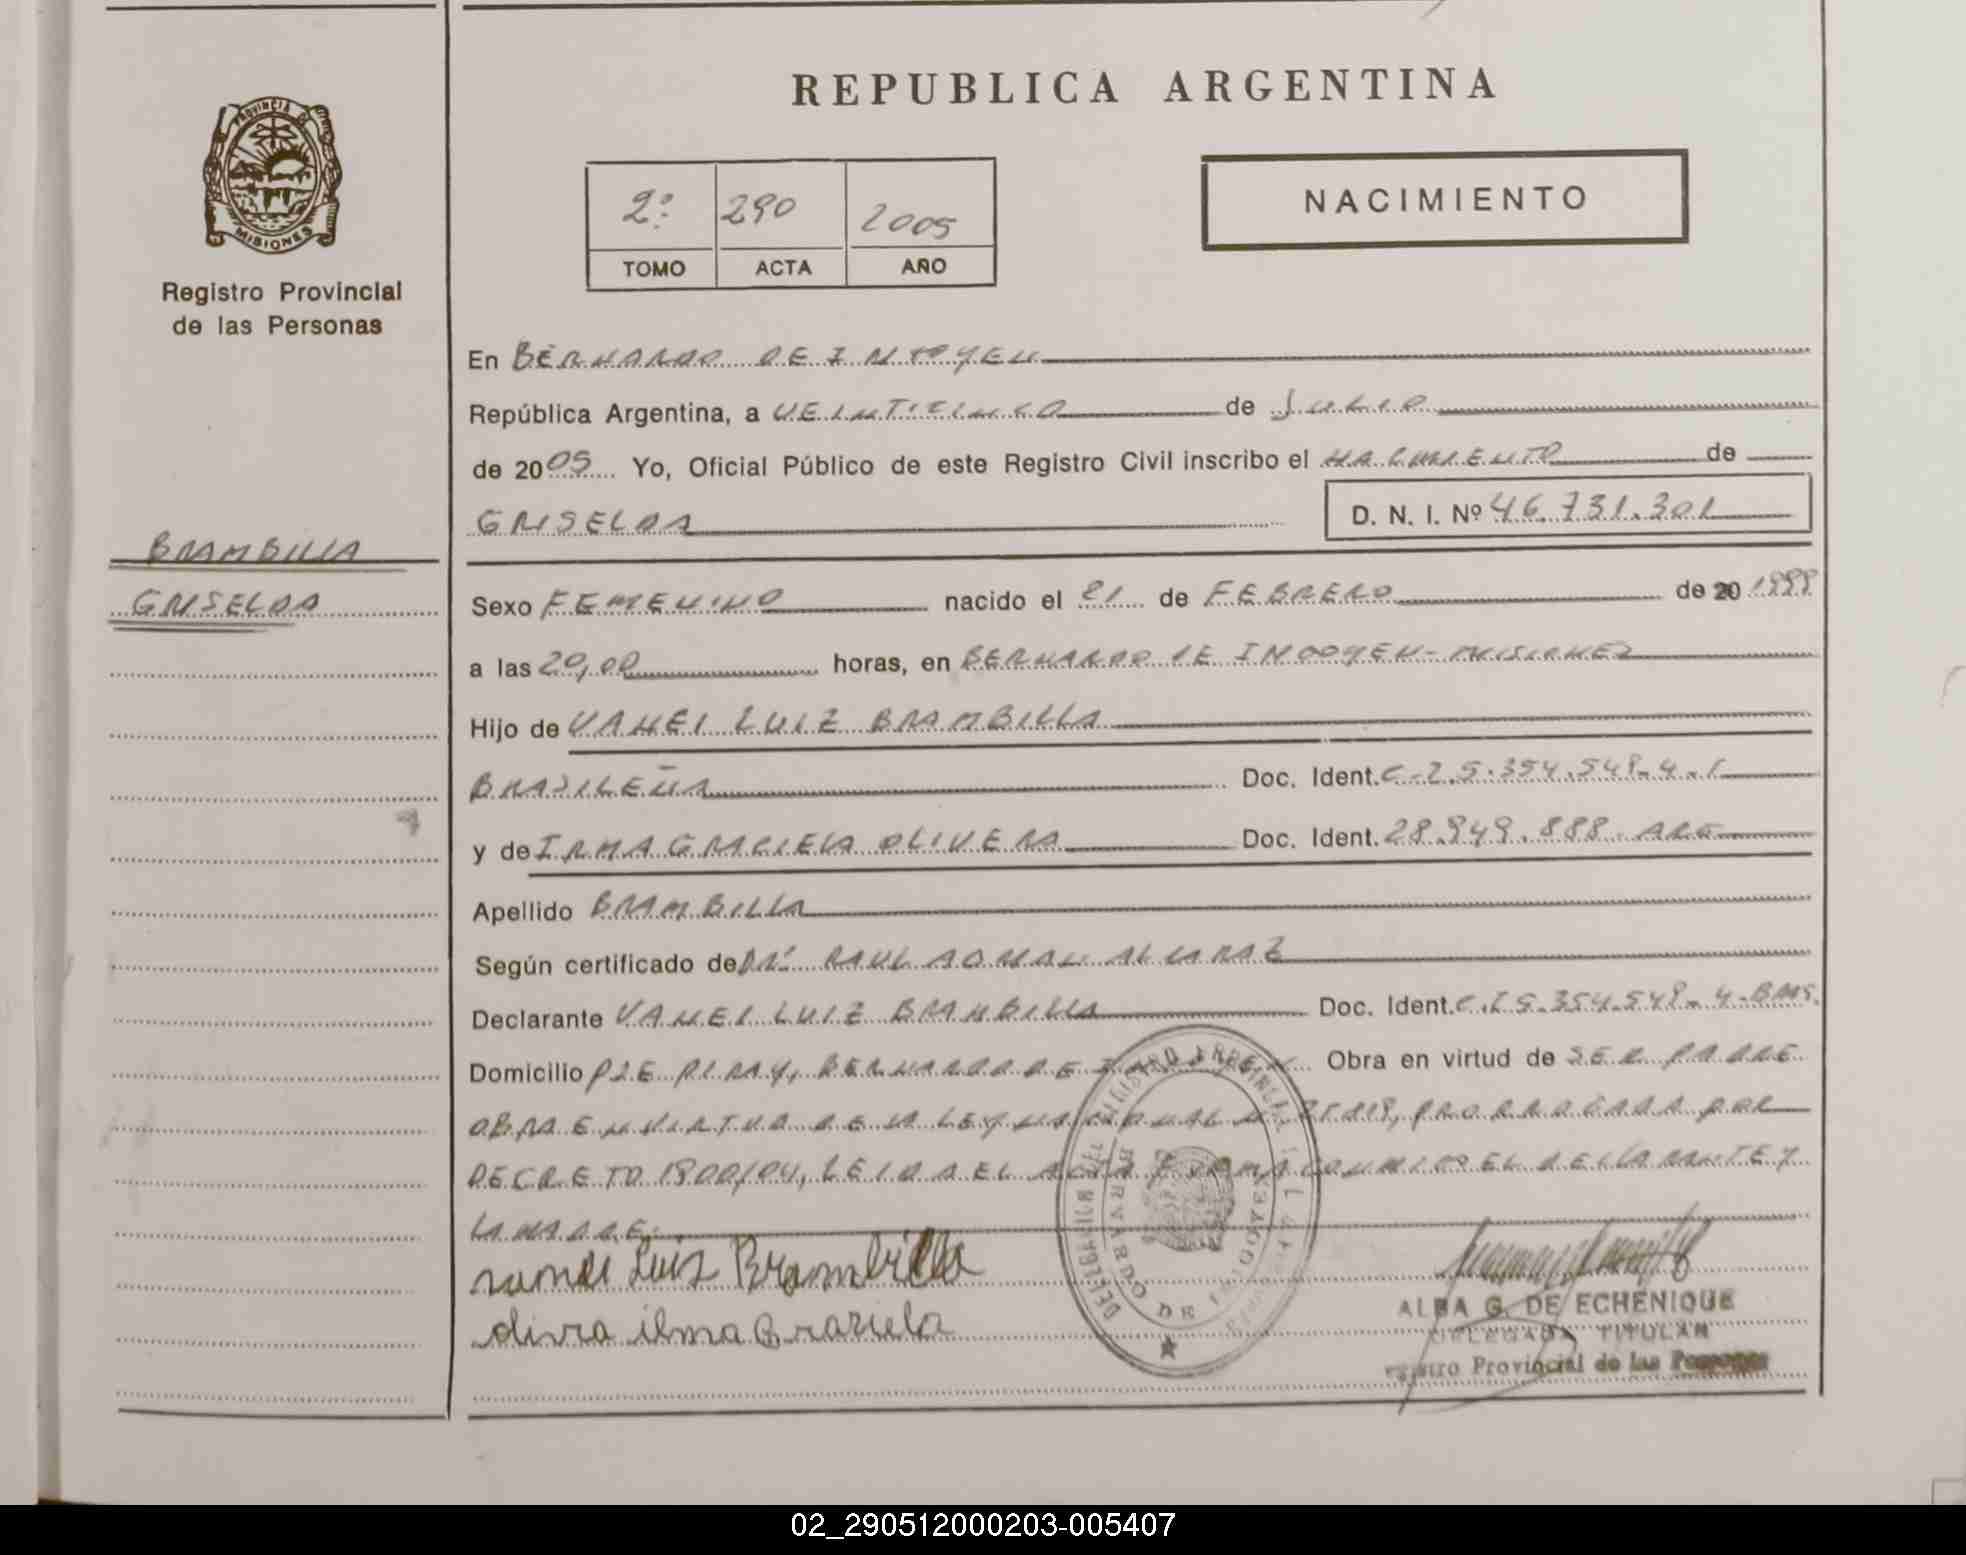 REPUBLICA ARGENTINA
PROVINCIA DE
MISIONES
Registro Provincial
de las Personas
2º 290 2005
TOMO ACTA AÑO
NACIMIENTO
En BERNARDO DE IRIGOYEN
República Argentina, a VEINTICINCO de JULIO
de 2005 Yo, Oficial Público de este Registro Civil inscribo el NACIMIENTO de
GRISELDA D. N. I. Nº 46.731.301
BRAMBILLA
GRISELDA
Sexo FEMENINO nacido el 21 de FEBRERO de 20 1999
a las 20,00 horas, en BERNARDO DE IRIGOYEN - MISIONES
Hijo de VANEI LUIZ BRAMBILLA
BRASILEÑA Doc. Ident.
y de IRMA GRACIELA OLIVERA Doc. Ident. 28.949.888 ARG
Apellido BRAMBILLA
Según certificado de DR. RAUL ALCARAZ
Declarante VANEI LUIZ BRAMBILLA Doc. Ident.
Domicilio PJE PIRAY, BERNARDO DE Obra en virtud de SER PADRE
OBRA EN VIRTUD DE LA LEY NACIONAL N PRORROGADA POR
DECRETO 1800/04, LEIDA EL ACTA FIRMA CONMIGO EL DECLARANTE Y
LA MADRE.
Luis Brambilla
olivra ilma Graziela
DELEGACION DEL REGISTRO PROVINCIAL
BERNARDO DE IRIGOYEN
ALBA G. DE ECHENIQUE
DELEGADA TITULAR
Registro Provincial de las Personas
02_290512000203-005407